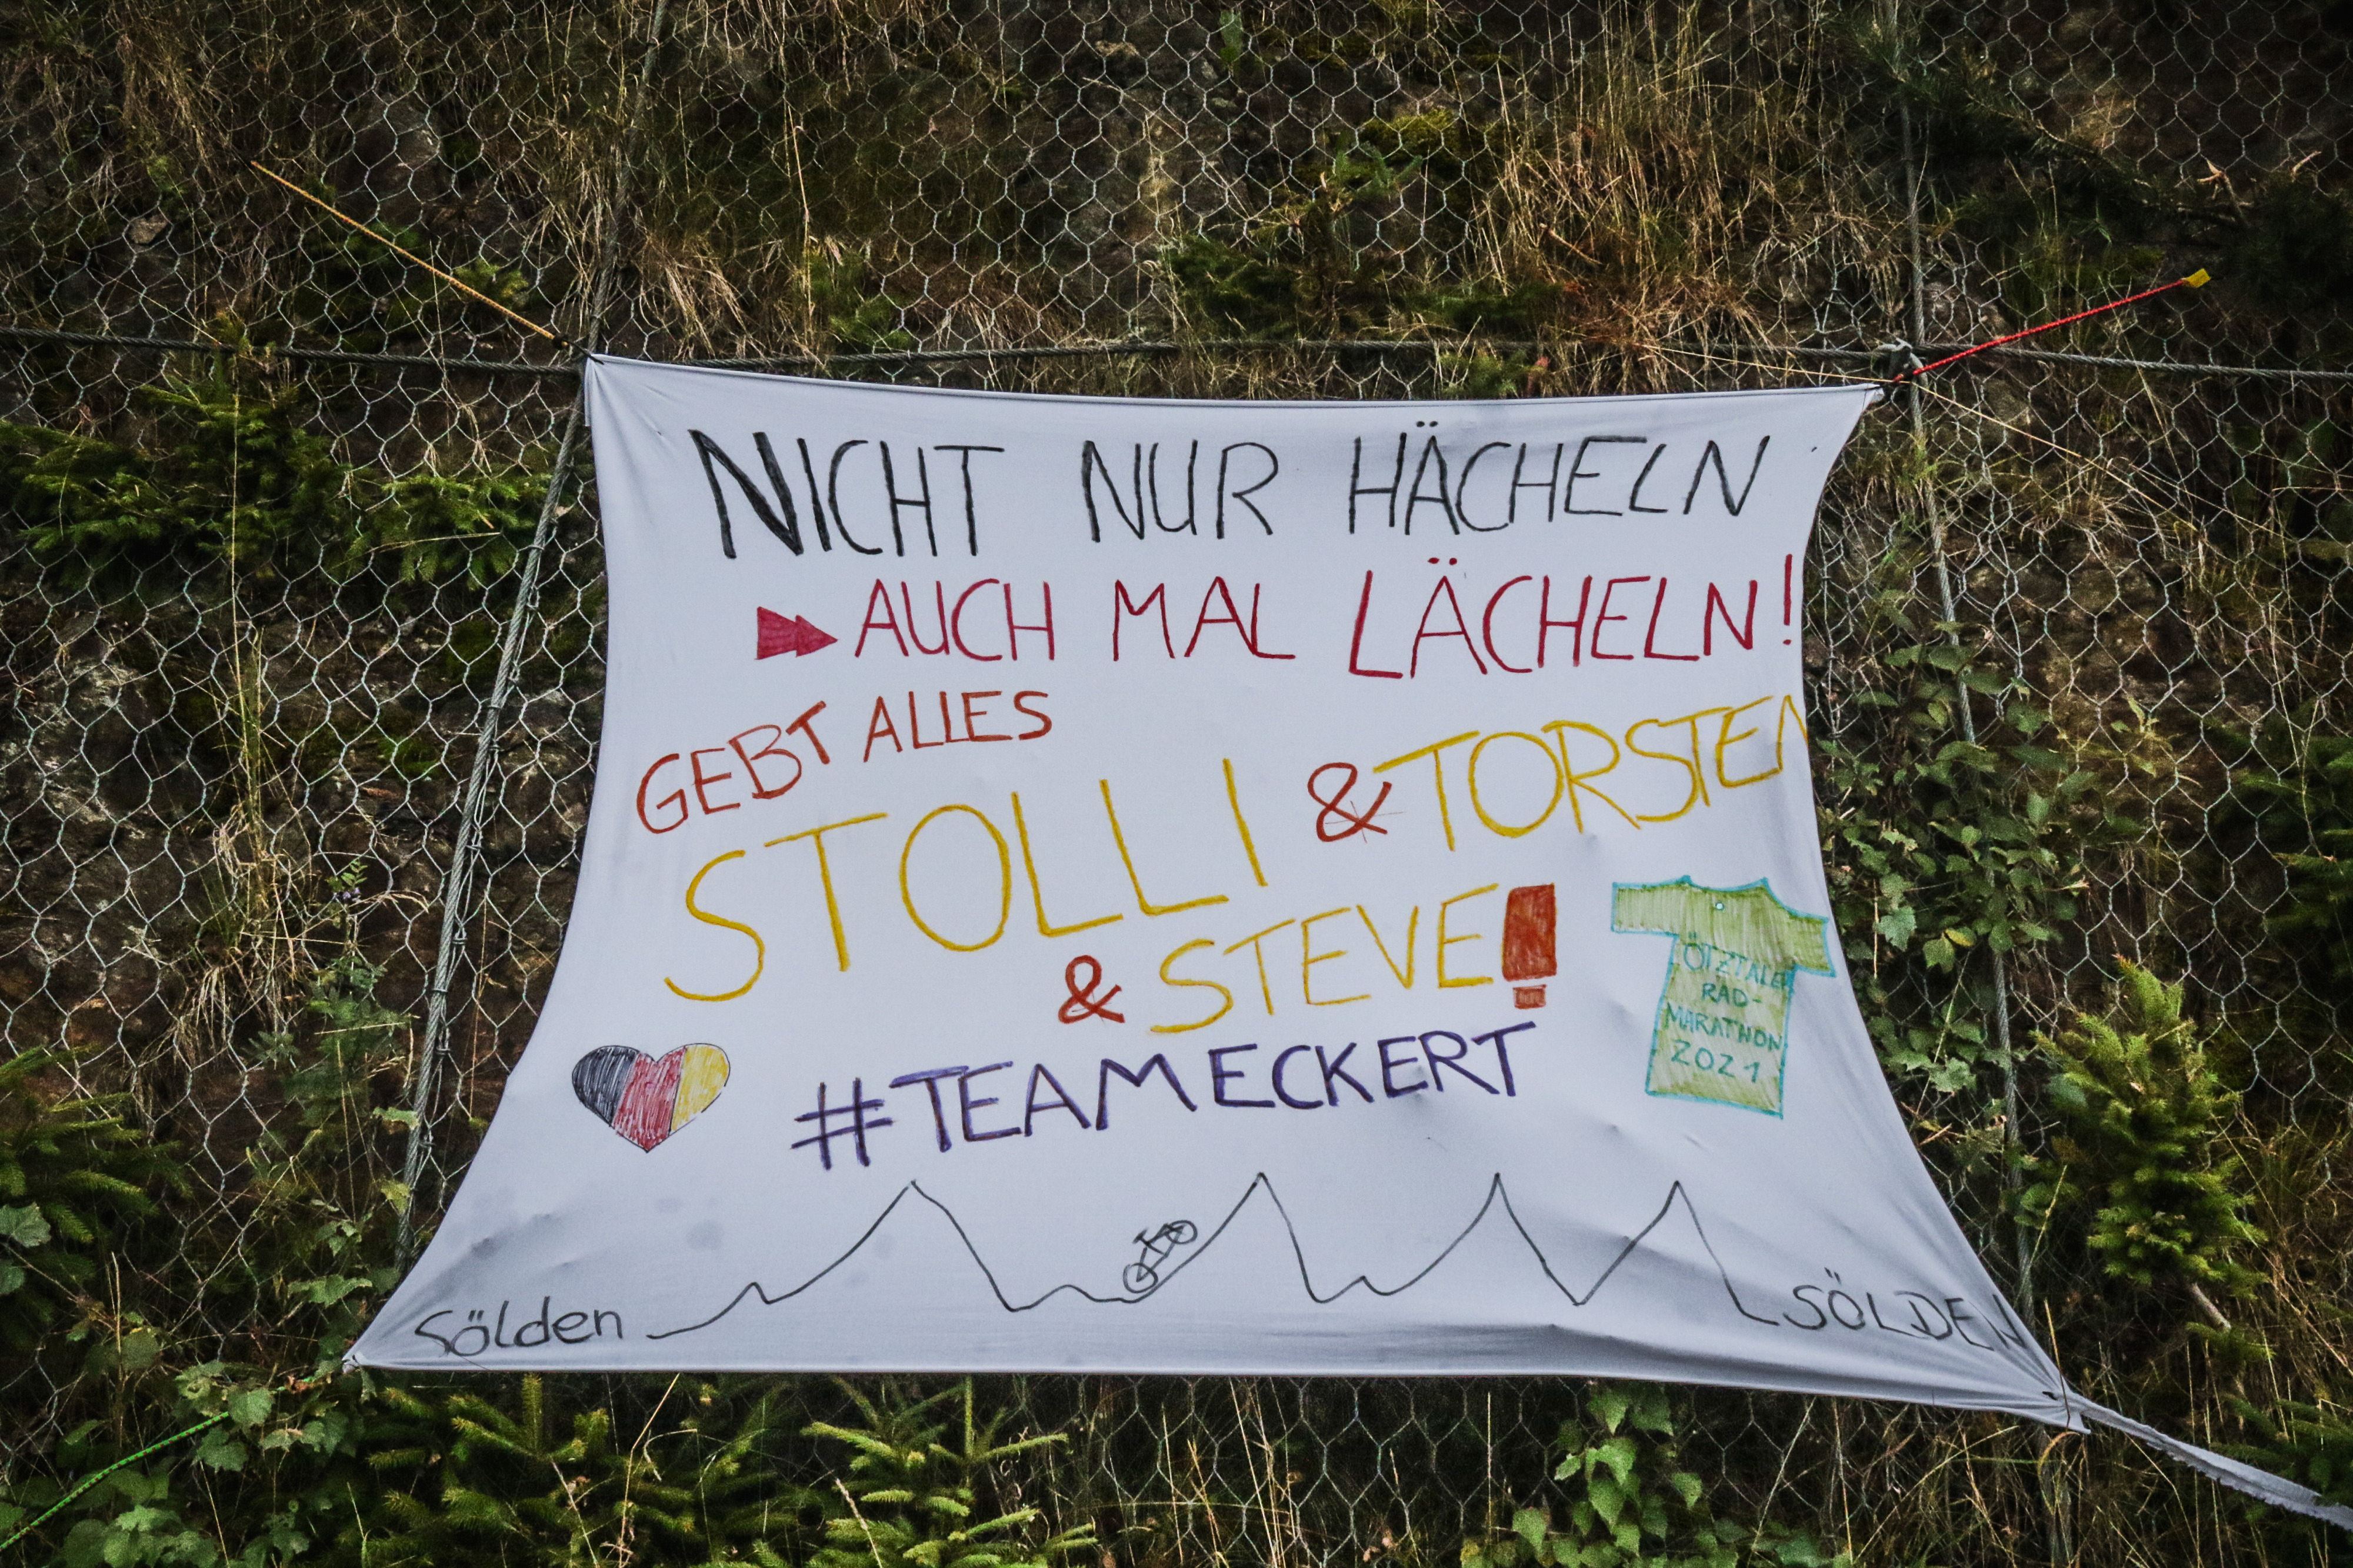 NICHT NUR HÄCHELN
AUCH MAL LÄCHELN!
GEBT ALLES
STOLLI & TORSTEN
& STEVE!
#TEAMECKERT
ÖTZTALER
RAD-
MARATHON
2021
Sölden
SÖLDEN